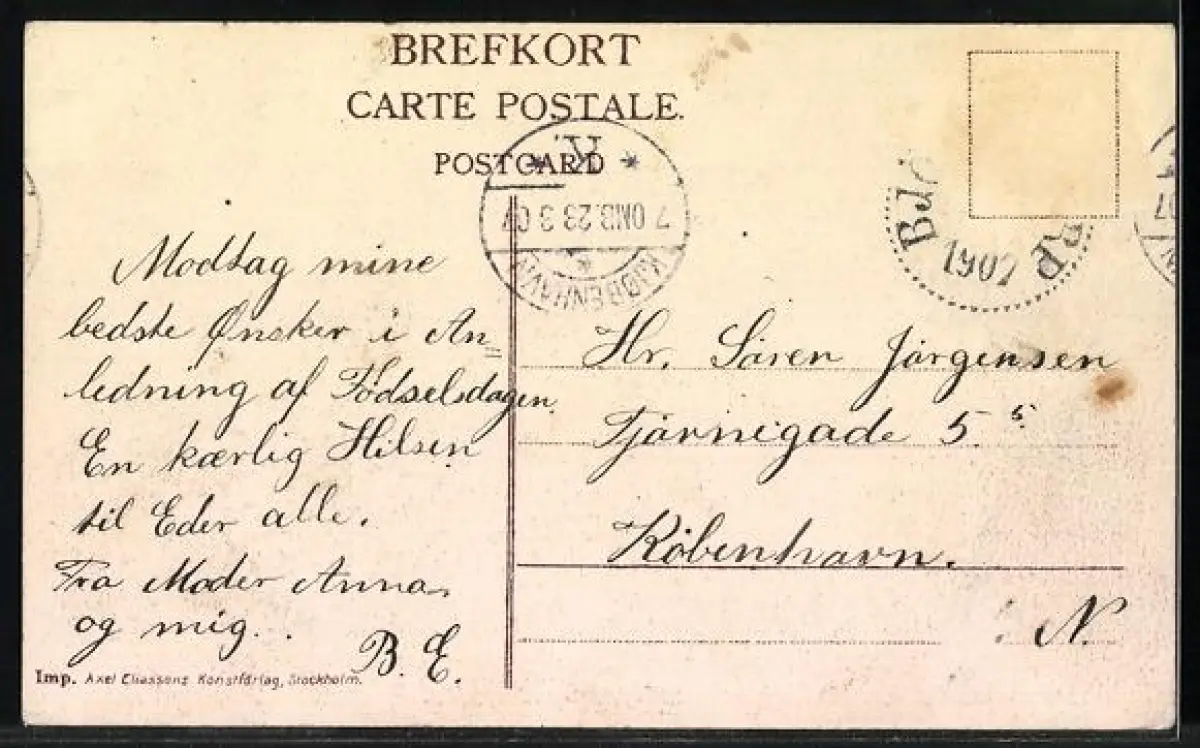 BREFKORT
CARTE POSTALE.
POSTCARD
K.
7 OMB. 23 3 07
KJØBENHAVN
1907
07
Modtag mine
bedste Ønsker i An=
ledning af Fødselsdagen.
En kærlig Hilsen
til Eder alle.
Fra Moder Anna
og mig.
B. E.
Hr. Sören Jörgensen
5. 5
København.
N.
Imp. Axel Eliassons Konstförlag, Stockholm.